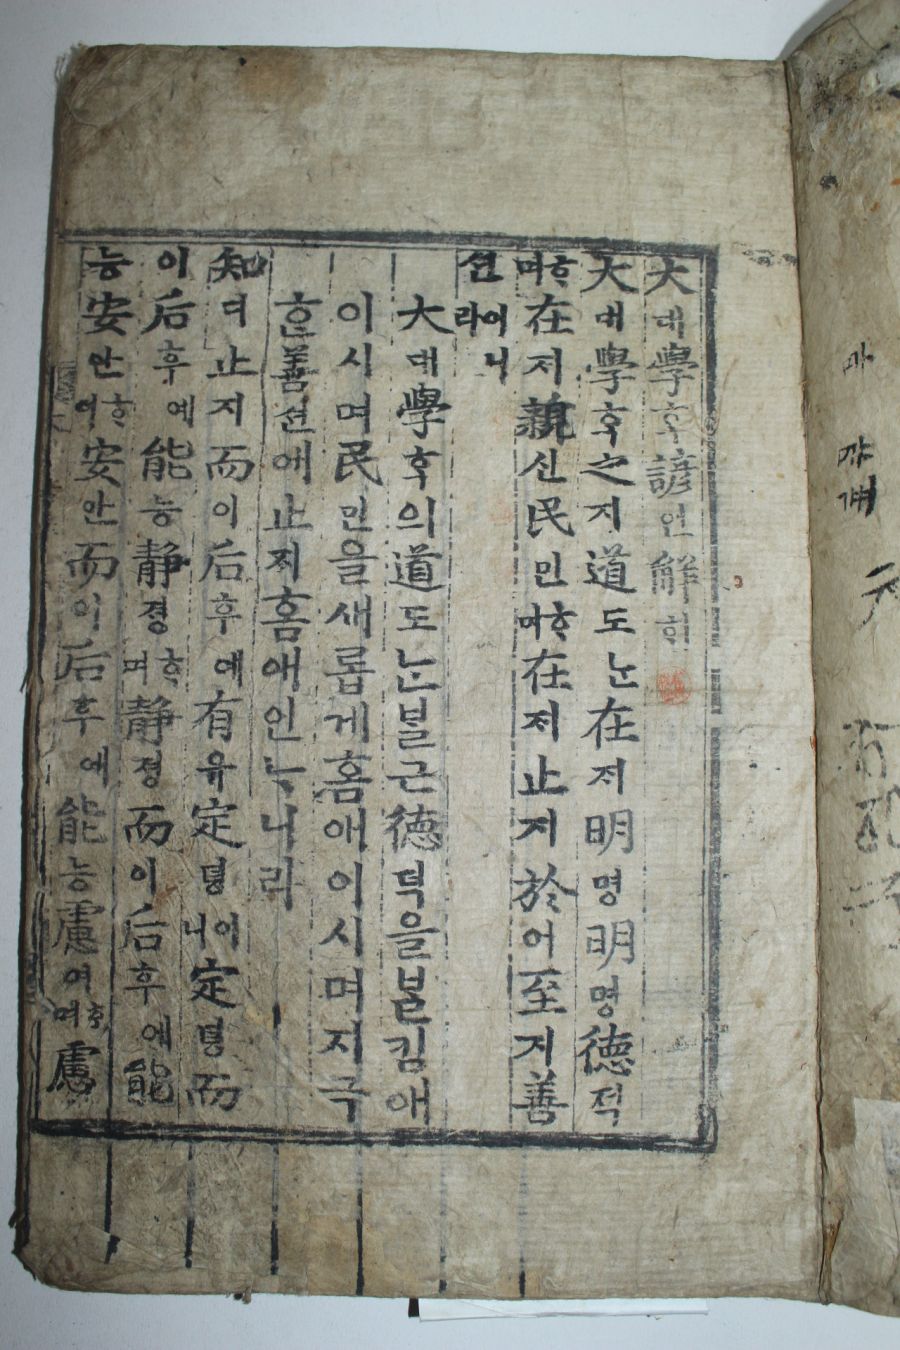 大대學ᄒᆞᆨ諺언解ᄒᆡ
大대學ᄒᆞᆨ之지道도ᄂᆞᆫ在ᄌᆡ明명明명德덕
ᄒᆞ며在ᄌᆡ親신民민ᄒᆞ며在ᄌᆡ止지於어至지善
션이니라
大대學ᄒᆞᆨ의道도ᄂᆞᆫᄇᆞᆯ근德덕을ᄇᆞᆯ김애
이시며民민을새롭게홈애이시며지극
ᄒᆞᆫ善션애止지홈애인ᄂᆞ니라
知디止지而이后후에有유定뎡이니定뎡而
이后후에能능静졍ᄒᆞ며静졍而이后후에能
능安안ᄒᆞ며安안而이后후에能능慮려ᄒᆞ며慮